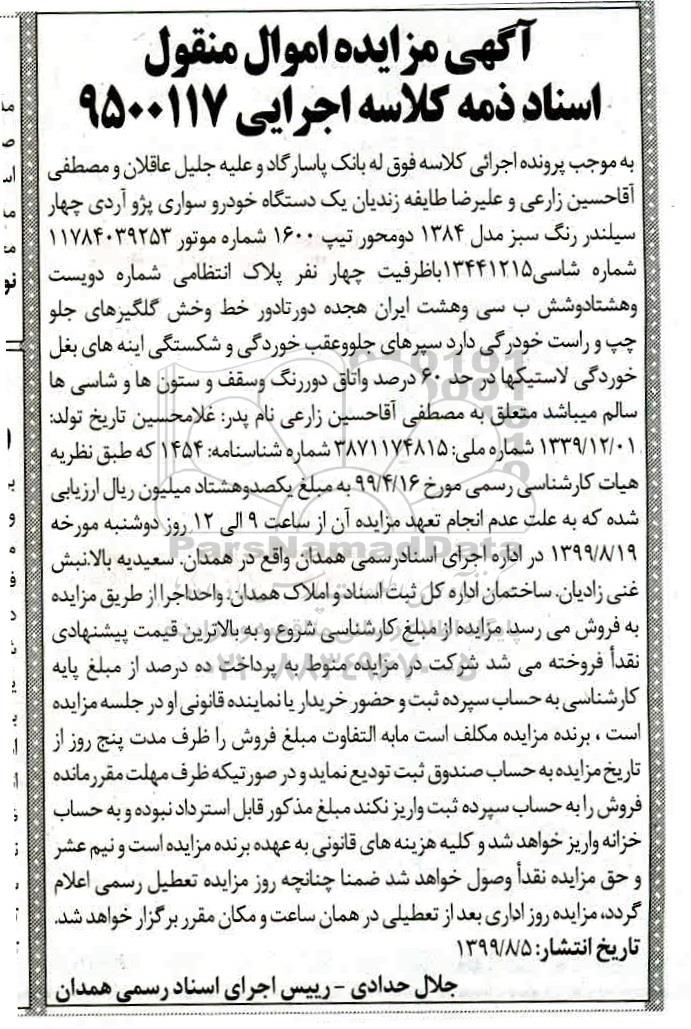 آگهی مزایده اموال منقول
اسناد ذمه کلاسه اجرایی ۹۵۰۰۱۱۷
به موجب پرونده اجرائی کلاسه فوق له بانک پاسارگاد و علیه جلیل عاقلان و مصطفی
آقاحسین زارعی و علیرضا طایفه زندیان یک دستگاه خودرو سواری پژو آردی چهار
سیلندر رنگ سبز مدل ۱۳۸۴ دومحور تیپ ۱۶۰۰ شماره موتور ۱۱۷۸۴۰۳۹۲۵۳
شماره شاسی۱۳۴۴۱۲۱۵باظرفیت چهار نفر پلاک انتظامی شماره دویست
وهشتادوشش ب سی وهشت ایران هجده دورتادور خط وخش گلگیزهای جلو
چپ و راست خودرگی دارد سپرهای جلووعقب خوردگی و شکستگی اینه های بغل
خوردگی لاستیکها در حد ۶۰ درصد واتاق دوررنگ وسقف و ستون ها و شاسی ها
سالم میباشد متعلق به مصطفی آقاحسین زارعی نام پدر: غلامحسین تاریخ تولد:
۱۳۳۹/۱۲/۰۱ شماره ملی: ۳۸۷۱۱۷۴۸۱۵ شماره شناسنامه: ۱۴۵۴ که طبق نظریه
هیات کارشناسی رسمی مورخ ۹۹/۴/۱۶ به مبلغ یکصدوهشتاد میلیون ریال ارزیابی
شده که به علت عدم انجام تعهد مزایده آن از ساعت ۹ الی ۱۲ روز دوشنبه مورخه
۱۳۹۹/۸/۱۹ در اداره اجرای اسنادرسمی همدان واقع در همدان. سعیدیه بالانبش
غنی زادیان. ساختمان اداره کل ثبت اسناد و املاک همدان. واحداجرا از طریق مزایده
به فروش می رسد. مزایده از مبلغ کارشناسی شروع و به بالاترین قیمت پیشنهادی
نقدأ فروخته می شد شرکت در مزایده منوط به پرداخت ده درصد از مبلغ پایه
کارشناسی به حساب سپرده ثبت و حضور خریدار یا نماینده قانونی او در جلسه مزایده
است ، برنده مزایده مکلف است مابه التفاوت مبلغ فروش را ظرف مدت پنج روز از
تاریخ مزایده به حساب صندوق ثبت تودیع نماید و در صورتیکه ظرف مهلت مقرر مانده
فروش را به حساب سپرده ثبت واریز نکند مبلغ مذکور قابل استرداد نبوده و به حساب
خزانه واریز خواهد شد و کلیه هزینه های قانونی به عهده برنده مزایده است و نیم عشر
و حق مزایده نقدأ وصول خواهد شد ضمنا چنانچه روز مزایده تعطیل رسمی اعلام
گردد، مزایده روز اداری بعد از تعطیلی در همان ساعت و مکان مقرر برگزار خواهد شد.
تاریخ انتشار: ۱۳۹۹/۸/۵
جلال حدادی - رییس اجرای اسناد رسمی همدان
ParsNamadData
۰۲۱-۸۸۳۴۹۶۷۰-۵